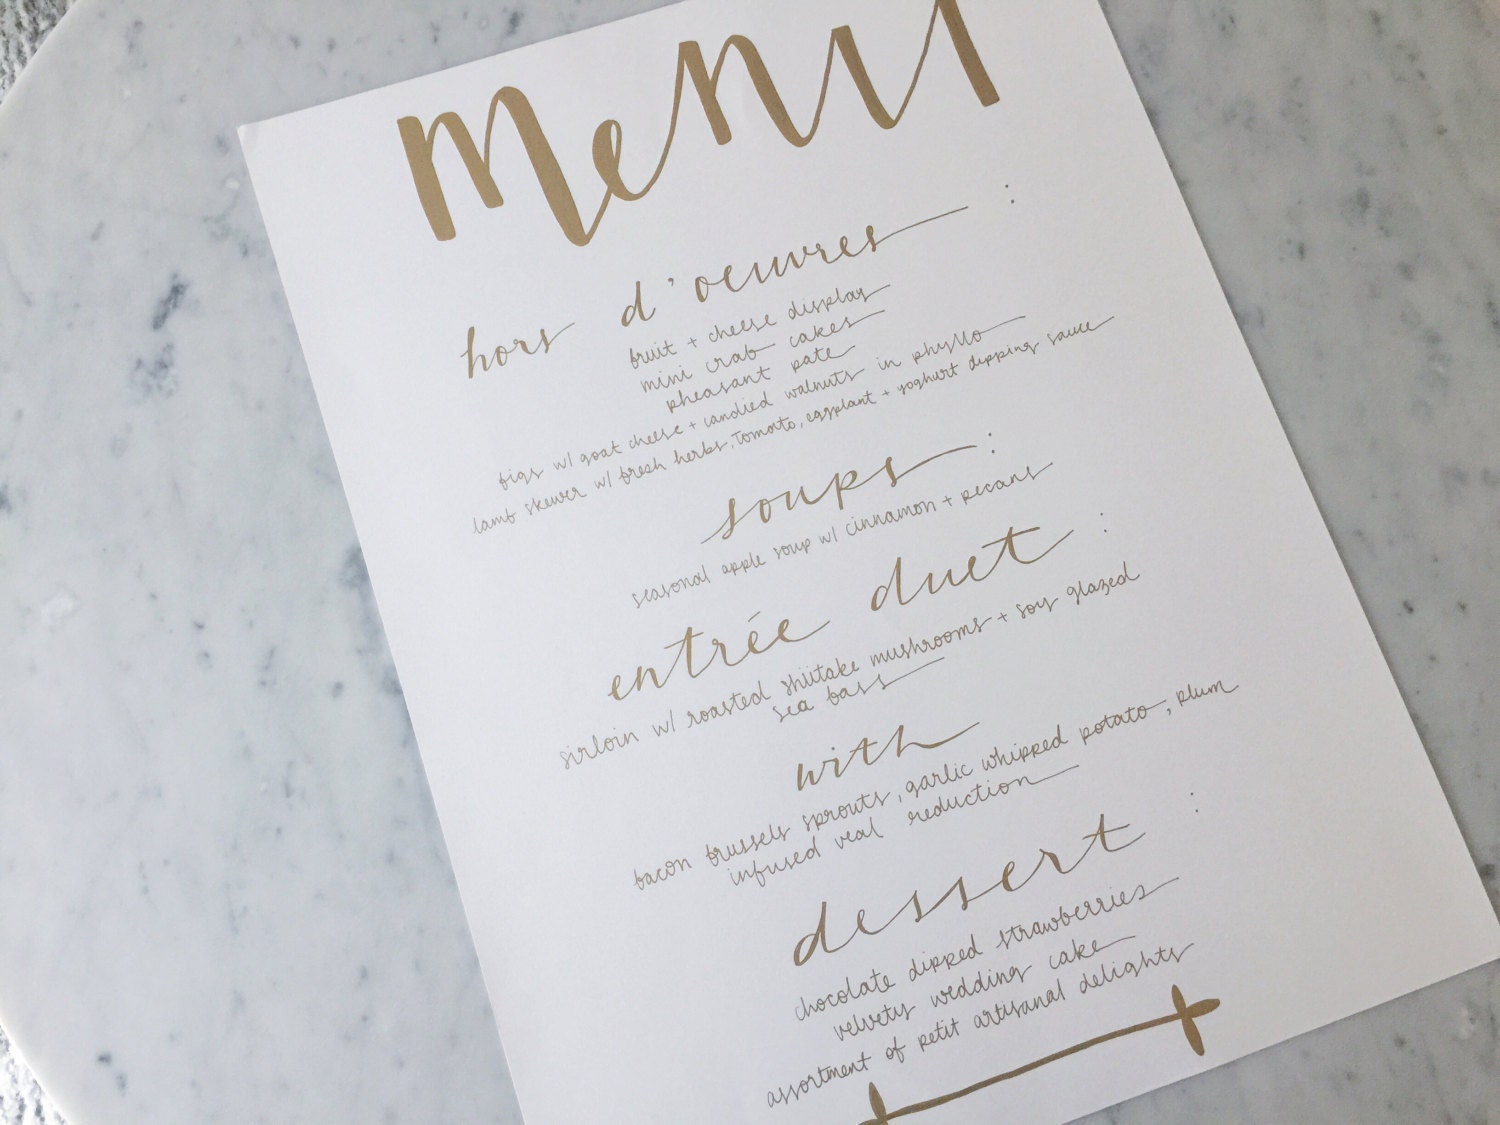 Menu
hors d'oeuvres :
fruit + cheese display
mini crab cakes
pheasant pate
figs w/ goat cheese + candied walnuts in phyllo
lamb skewer w/ fresh herbs, tomato, eggplant + yoghurt dipping sauce
soups :
seasonal apple soup w/ cinnamon + pecans
entrée duet :
sirloin w/ roasted shiitake mushrooms + soy glazed
sea bass
with
bacon brussels sprouts, garlic whipped potato, plum
infused veal reduction
dessert :
chocolate dipped strawberries
velvety wedding cake
assortment of petit artisanal delights